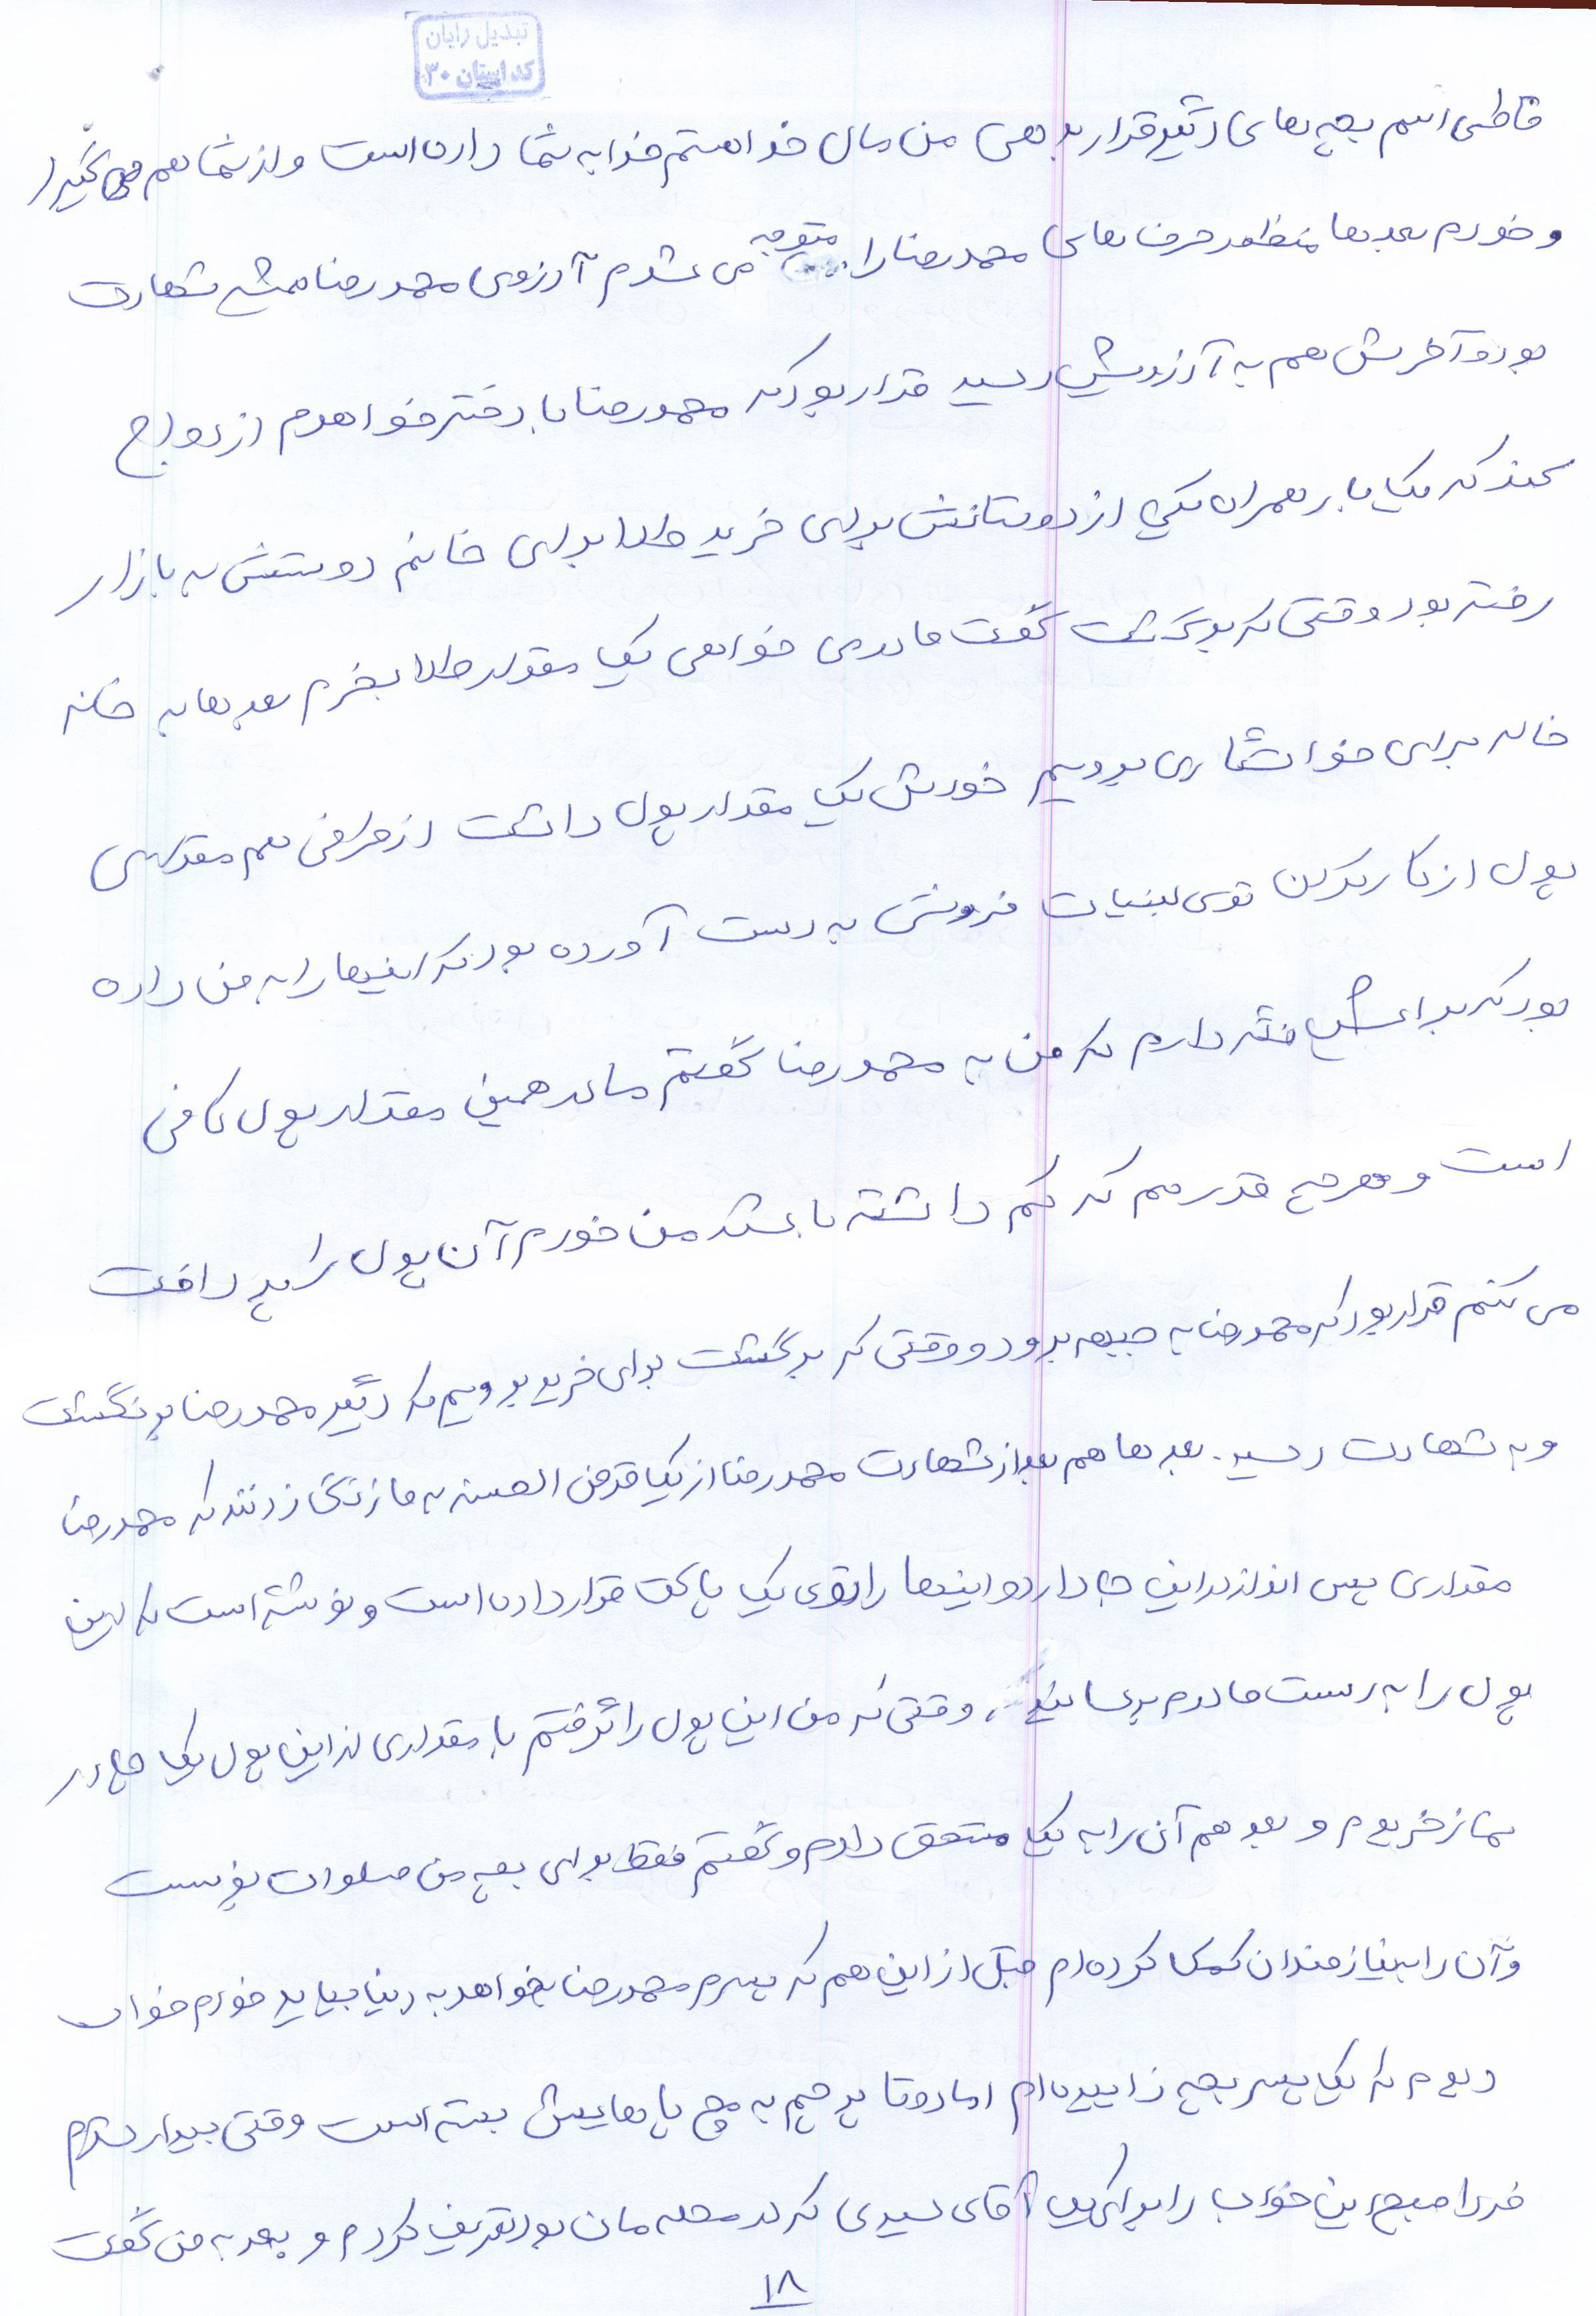 تبدیل رایان
کد استان ۳۰
قاطی اسم بچه های دیگر قرار بدهی من مال خدا هستم خدا به شما داده است و از شما هم می گیرد
و خودم بعدها منظور حرف های محمدرضا را متوجه می شدم آرزوی محمدرضا همش شهادت
بود و آخرش هم به آرزویش رسید قرار بود که محمدرضا با دختر خواهرم ازدواج
کند که یک بار همراه یکی از دوستانش برای خرید طلا برای خانم دوستش به بازار
رفته بود وقتی که برگشت گفت مادر می خواهی یک مقدار طلا بخرم بعدها به خانه
خاله برای خواستگاری برویم خودش یک مقدار پول داشت از طرفی هم مقداری
پول از کار کردن توی لبنیات فروشی به دست آورده بود که اینها را به من داده
بود که برایش نگه دارم که من به محمدرضا گفتم مادر همین مقدار پول کافی
است و هر چقدر هم که کم داشته باشد من خودم آن پول را پرداخت
می کنم قرار بود که محمدرضا به جبهه برود و وقتی که برگشت برای خرید برویم که دیگر محمدرضا برنگشت
و به شهادت رسید. بعدها هم بعد از شهادت محمدرضا از یک قرض الحسنه به ما زنگ زدند که محمدرضا
مقداری پس انداز در این جا دارد و اینها را توی یک پاکت قرار داده است و نوشته است که این
پول را به دست مادرم برسانید، وقتی که من این پول را گرفتم با مقداری از این پول یک چادر
نماز خریدم و بعد هم آن را به یک مستحق دادم و گفتم فقط برای بچه من صلوات بفرست
و آن را به نیازمندان کمک کرده ام قبل از این هم که پسرم محمدرضا بخواهد به دنیا بیاید خودم خواب
دیدم که یک پسر بچه زاییده ام اما دو تا پرچم به مچ پاهایش بسته است وقتی بیدار شدم
فردا صبح این خواب را برای آقای سیدی که در محله مان بود تعریف کردم و بعد به من گفت
۱۸